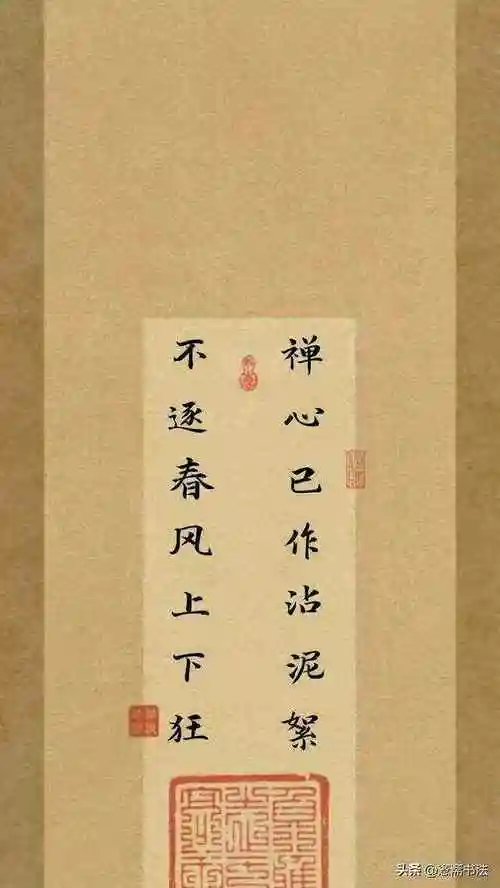 禅心已作沾泥絮
不逐春风上下狂
头条@容斋书法